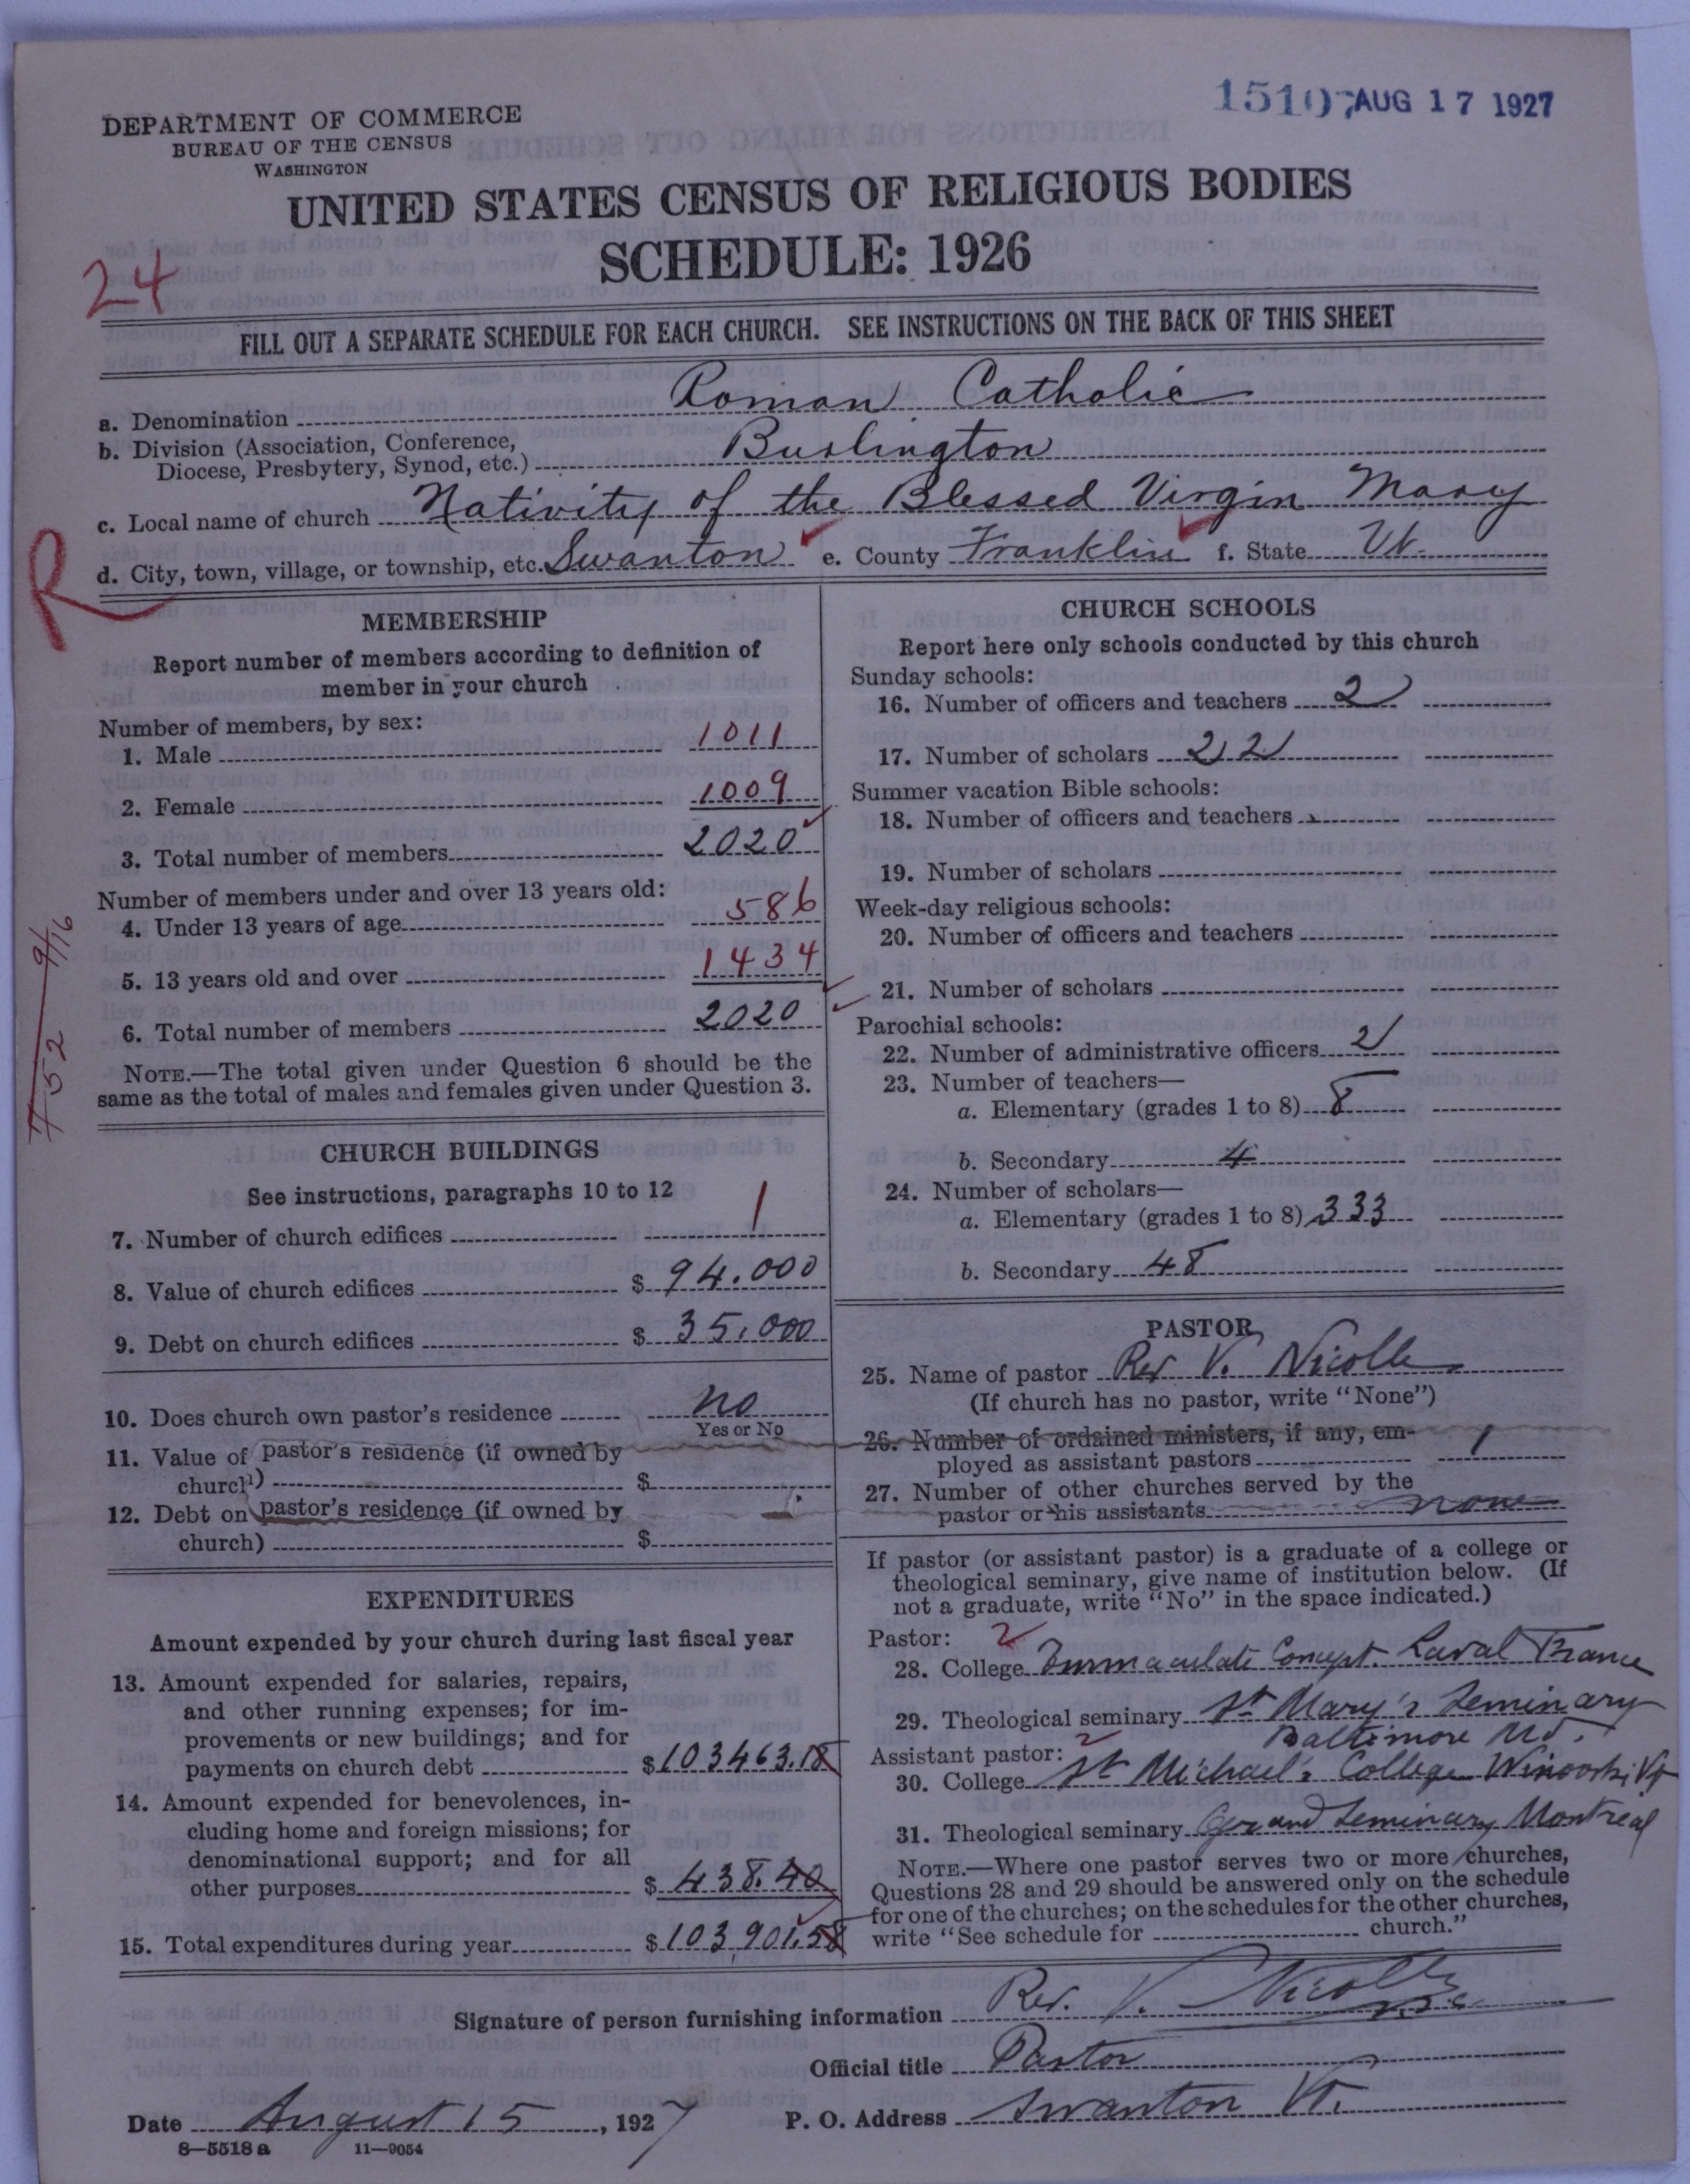 15107 AUG 17 1927
DEPARTMENT OF COMMERCE
BUREAU OF THE CENSUS
WASHINGTON
UNITED STATES CENSUS OF RELIGIOUS BODIES
SCHEDULE: 1926
24
FILL OUT A SEPARATE SCHEDULE FOR EACH CHURCH. SEE INSTRUCTIONS ON THE BACK OF THIS SHEET
a. Denomination Roman Catholic
b. Division (Association, Conference,
Diocese, Presbytery, Synod, etc.) Burlington
c. Local name of church Nativity of the Blessed Virgin Mary
d. City, town, village, or township, etc. Swanton e. County Franklin f. State Vt.
R
MEMBERSHIP
Report number of members according to definition of
member in your church
Number of members, by sex:
1. Male 1011
2. Female 1009
3. Total number of members 2020
Number of members under and over 13 years old:
4. Under 13 years of age 586
5. 13 years old and over 1434
6. Total number of members 2020
NOTE.—The total given under Question 6 should be the
same as the total of males and females given under Question 3.
752 9/16
CHURCH BUILDINGS
See instructions, paragraphs 10 to 12
7. Number of church edifices 1
8. Value of church edifices $ 94.000
9. Debt on church edifices $ 35.000
10. Does church own pastor's residence no
Yes or No
11. Value of pastor's residence (if owned by
church) $
12. Debt on pastor's residence (if owned by
church) $
EXPENDITURES
Amount expended by your church during last fiscal year
13. Amount expended for salaries, repairs,
and other running expenses; for im-
provements or new buildings; and for
payments on church debt $ 103463.18
14. Amount expended for benevolences, in-
cluding home and foreign missions; for
denominational support; and for all
other purposes $ 438.40
15. Total expenditures during year $ 103,901.58
CHURCH SCHOOLS
Report here only schools conducted by this church
Sunday schools:
16. Number of officers and teachers 2
17. Number of scholars 22
Summer vacation Bible schools:
18. Number of officers and teachers
19. Number of scholars
Week-day religious schools:
20. Number of officers and teachers
21. Number of scholars
Parochial schools:
22. Number of administrative officers 2
23. Number of teachers—
a. Elementary (grades 1 to 8) 8
b. Secondary 4
24. Number of scholars—
a. Elementary (grades 1 to 8) 333
b. Secondary 48
PASTOR
25. Name of pastor Rev V. Nicolle
(If church has no pastor, write "None")
26. Number of ordained ministers, if any, em-
ployed as assistant pastors 1
27. Number of other churches served by the
pastor or his assistants none
If pastor (or assistant pastor) is a graduate of a college or
theological seminary, give name of institution below. (If
not a graduate, write "No" in the space indicated.)
Pastor: 2
28. College Immaculate Concept. Laval France
29. Theological seminary St Mary's Seminary
Baltimore Md.
Assistant pastor: 2
30. College St Michael's College Winooski Vt
31. Theological seminary Grand Seminary Montreal
NOTE.—Where one pastor serves two or more churches,
Questions 28 and 29 should be answered only on the schedule
for one of the churches; on the schedules for the other churches,
write "See schedule for church."
Signature of person furnishing information Rev. V. Nicolle
Official title Pastor
Date August 15, 1927 P. O. Address Swanton Vt.
8—5518 a 11—9054